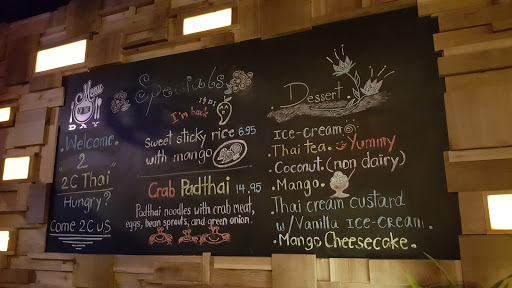 Menu
DAY
Welcome
"2"
2C Thai
Hungry?
Come 2C US
Specials
I'm back
Sweet sticky rice 6.95
with mango
Crab Padthai 14.95
Padthai noodles with crab meat,
eggs, bean sprouts, and green onion.
Dessert.
Ice-cream
. Thai tea. Yummy
. Coconut. (non dairy)
. Mango.
. Thai cream custard
w/Vanilla ICE-CREAM.
. Mango Cheesecake.